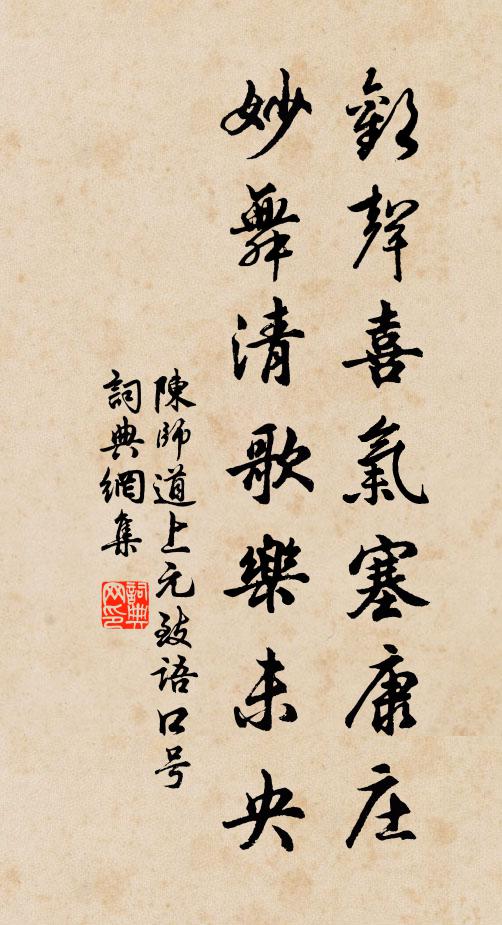 歡聲喜氣塞康庄
妙舞清歌樂未央
陳師道上元致語口号
詞典網集
詞典网印